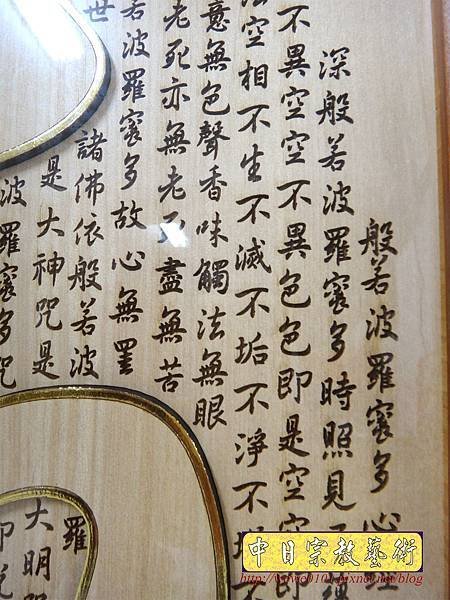 般若波羅蜜多心經
深般若波羅蜜多時照見
不異空空不異色色即是空空即
法空相不生不滅不垢不淨不增不
意無色聲香味觸法無眼
老死亦無老死盡無苦
若波羅蜜多故心無罣
世
諸佛依般若波
是大神咒是
波羅蜜多咒
羅
大明咒
即說
中日宗教藝術